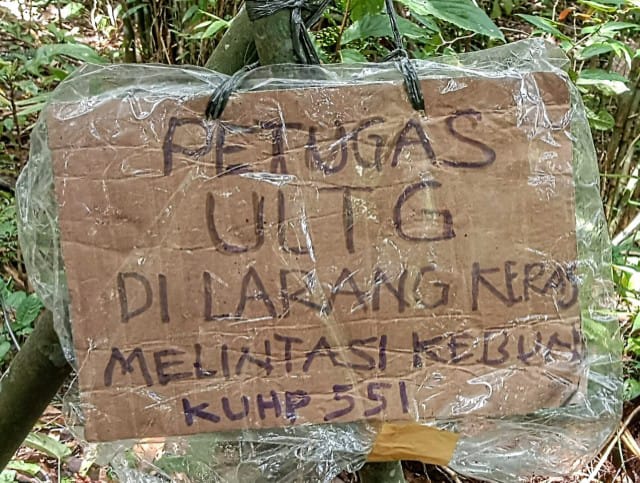 PETUGAS
ULTG
DI LARANG KERAS
MELINTASI KEBUN
KUHP 551